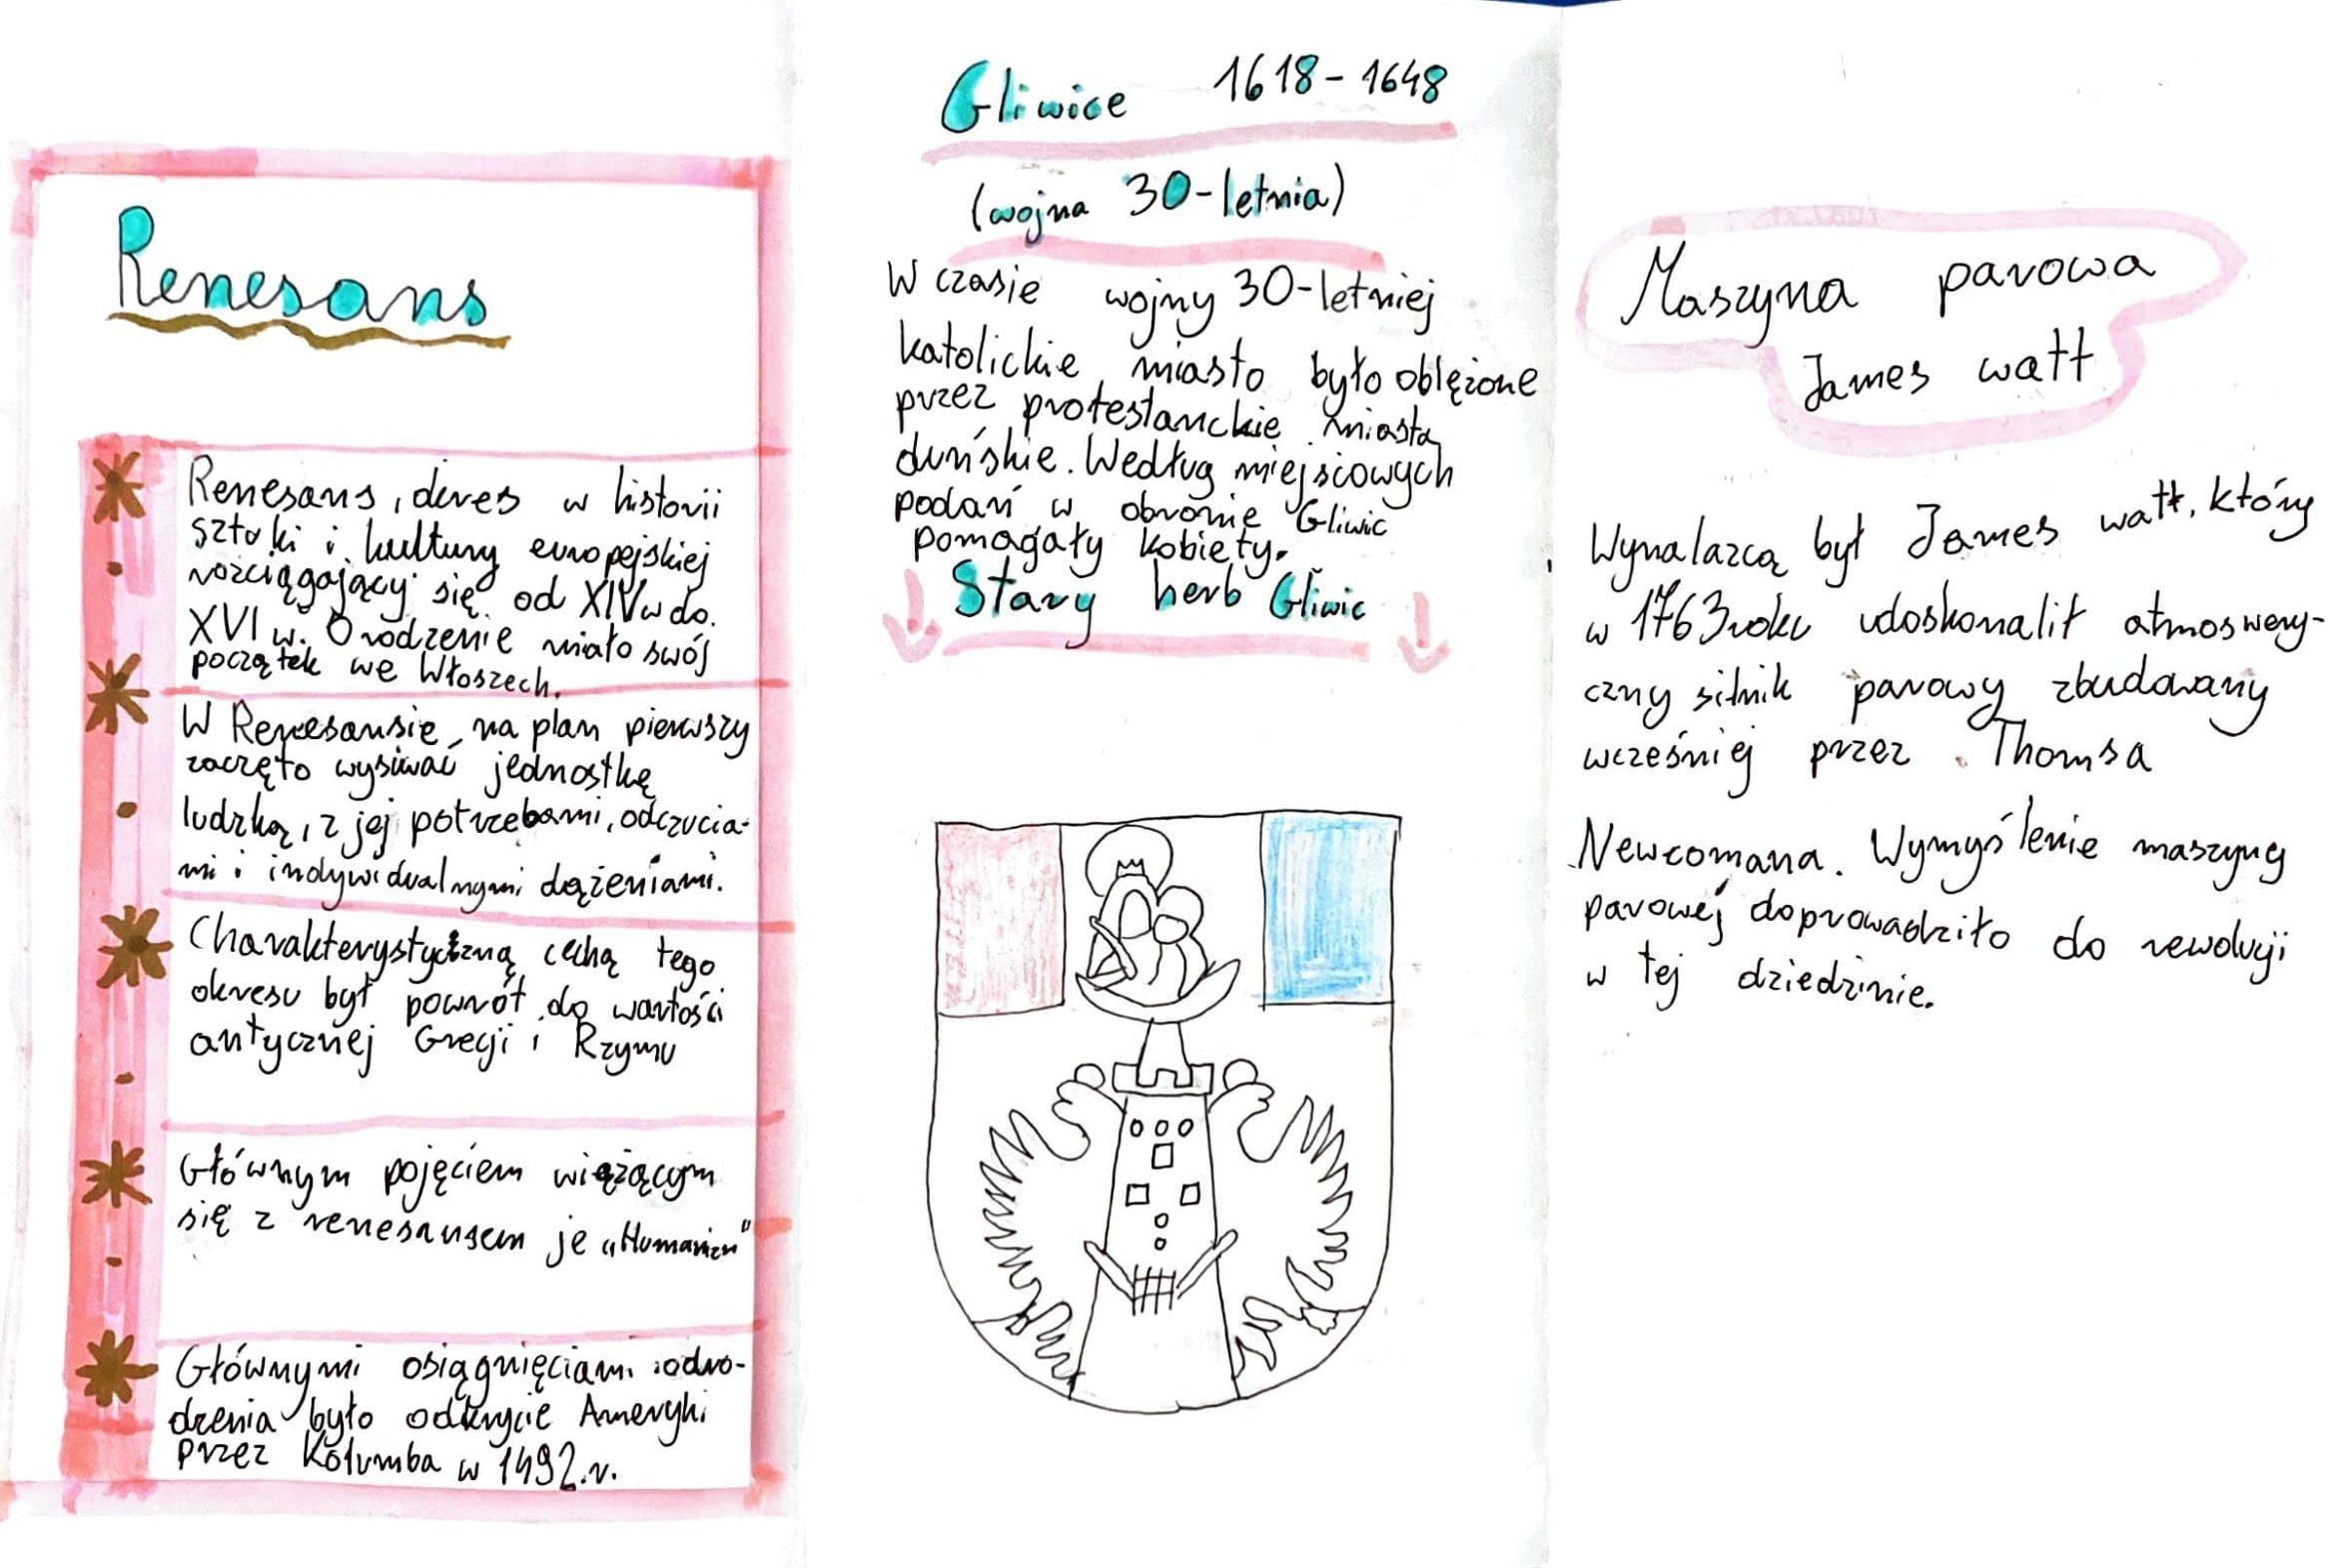 Renesans
Renesans, okres w historii
sztuki i kultury europejskiej
rozciągający się od XIV w do.
XVI w. Orodzenie miało swój
początek we Włoszech.
W Renesansie na plan pierwszy
zaczęto wysiwać jednostkę
ludzką, z jej potrzebami, odczucia-
mi i indywidualnymi dążeniami.
Charakterystyczną cechą tego
okresu był powrót do wartości
antycznej Grecji i Rzymu
Głównym pojęciem wiążącym
się z renesansem je „Humanizm"
Głównymi osiągnięciami odro-
dzenia było odkrycie Ameryki
przez Kolumba w 1492.r.
Gliwice 1618-1648
(wojna 30-letnia)
W czasie wojny 30-letniej
katolickie miasto było oblężone
przez protestanckie miasta
duńskie. Według miejscowych
podań w obronie Gliwic
pomagały kobiety.
Stary herb Gliwic
Maszyna parowa
James watt
Wynalazcą był James watt, który
w 1763 roku udoskonalił atmoswery-
czny silnik parowy zbudowany
wcześniej przez Thomsa
Newcomana. Wymyślenie maszyny
parowej doprowadziło do rewolucji
w tej dziedzinie.